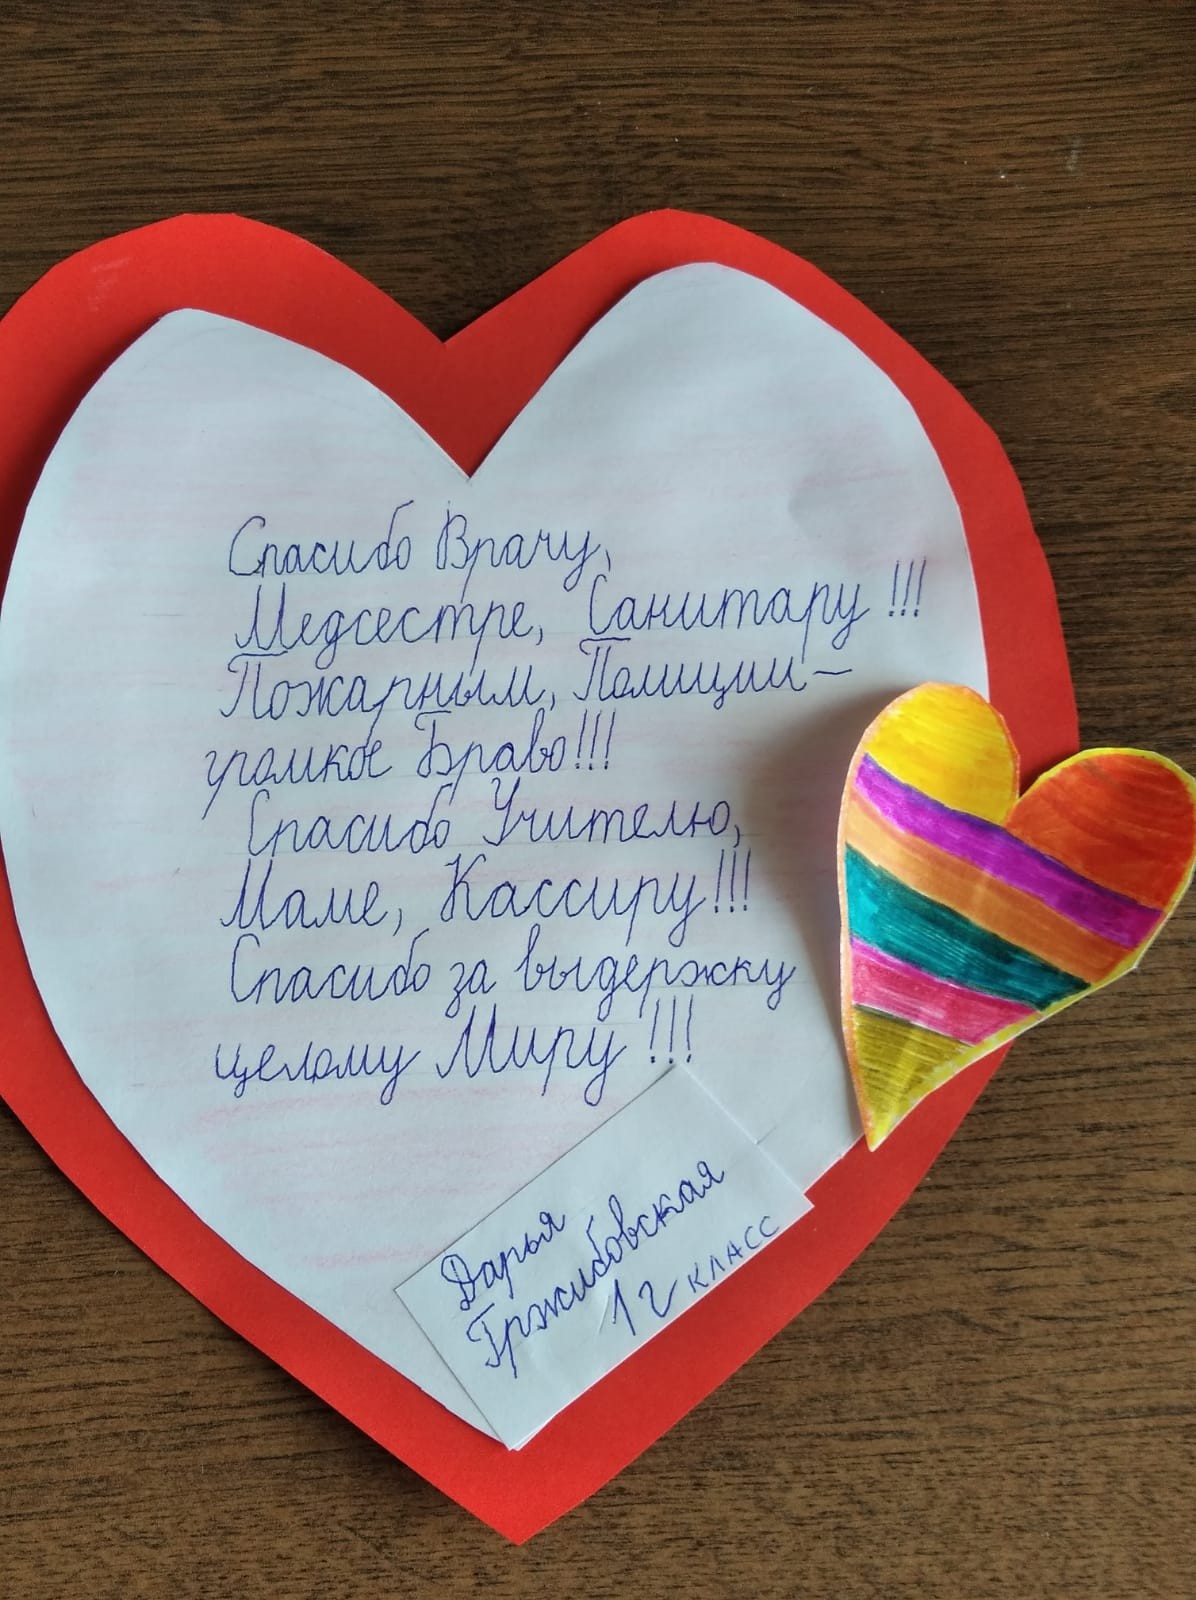 Спасибо Врачу,
Медсестре, Санитару!!!
Пожарным, Полиции –
громкое Браво!!!
Спасибо Учителю,
Маме, Кассиру!!!
Спасибо за выдержку
целому Миру!!!
Дарья
Гржибовская
1 г класс